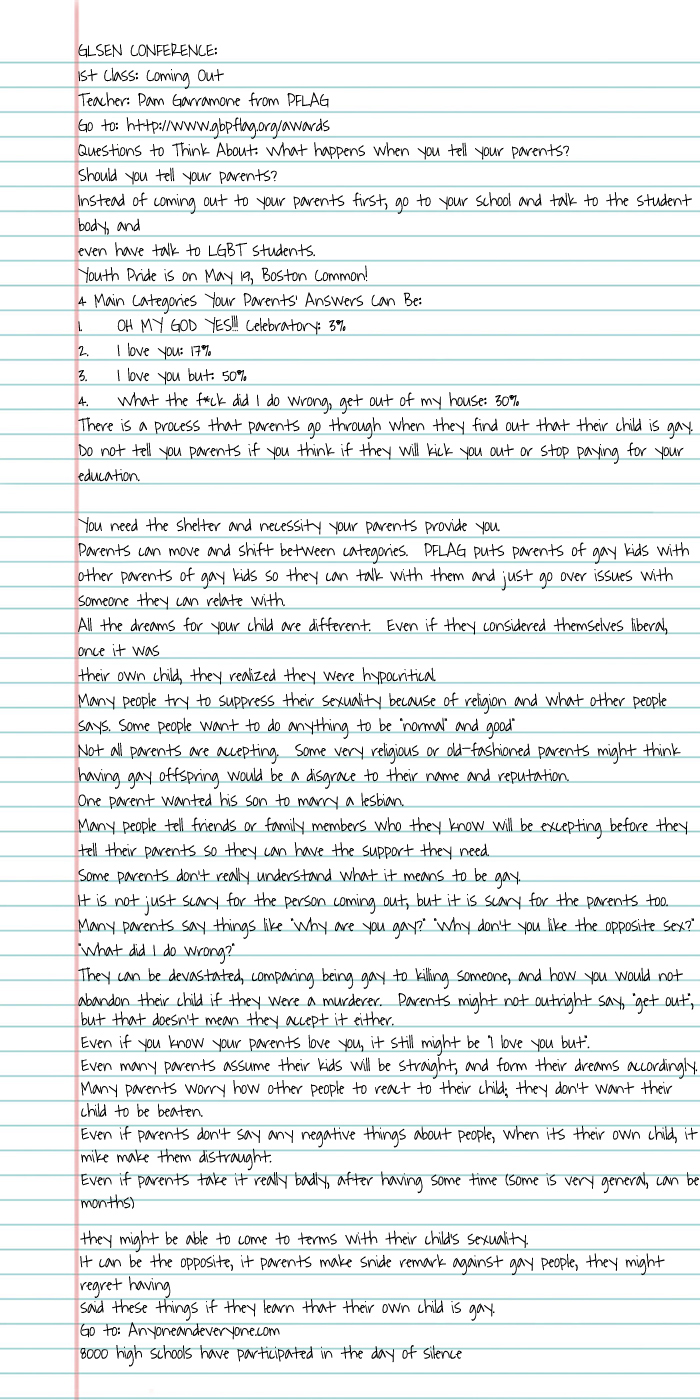 GLSEN CONFERENCE:
1st Class: Coming Out
Teacher: Pam Garramone from PFLAG
Go to: http://www.gbpflag.org/awards
Questions to Think About: What happens when you tell your parents?
Should you tell your parents?
Instead of coming out to your parents first, go to your school and talk to the student
body, and
even have talk to LGBT students.
Youth Pride is on May 19, Boston Common!
4 Main Categories Your Parents' Answers Can Be:
1. OH MY GOD YES!!! Celebratory: 3%
2. I love you: 17%
3. I love you but: 50%
4. What the f*ck did I do wrong, get out of my house: 30%
There is a process that parents go through when they find out that their child is gay.
Do not tell you parents if you think if they will kick you out or stop paying for your
education.
You need the shelter and necessity your parents provide you.
Parents can move and shift between categories. PFLAG puts parents of gay kids with
other parents of gay kids so they can talk with them and just go over issues with
someone they can relate with.
All the dreams for your child are different. Even if they considered themselves liberal,
once it was
their own child, they realized they were hypocritical.
Many people try to suppress their sexuality because of religion and what other people
says. Some people want to do anything to be "normal" and good"
Not all parents are accepting. Some very religious or old-fashioned parents might think
having gay offspring would be a disgrace to their name and reputation.
One parent wanted his son to marry a lesbian.
Many people tell friends or family members who they know will be excepting before they
tell their parents so they can have the support they need.
Some parents don't really understand what it means to be gay.
It is not just scary for the person coming out, but it is scary for the parents too.
Many parents say things like "Why are you gay?" "Why don't you like the opposite sex?"
"What did I do wrong?"
They can be devastated, comparing being gay to killing someone, and how you would not
abandon their child if they were a murderer. Parents might not outright say, "get out",
but that doesn't mean they accept it either.
Even if you know your parents love you, it still might be "I love you but".
Even many parents assume their kids will be straight, and form their dreams accordingly.
Many parents worry how other people to react to their child; they don't want their
child to be beaten.
Even if parents don't say any negative things about people, when its their own child, it
mike make them distraught.
Even if parents take it really badly, after having some time (some is very general, can be
months)
they might be able to come to terms with their child's sexuality.
It can be the opposite, it parents make snide remark against gay people, they might
regret having
said these things if they learn that their own child is gay.
Go to: Anyoneandeveryone.com
8000 high schools have participated in the day of silence